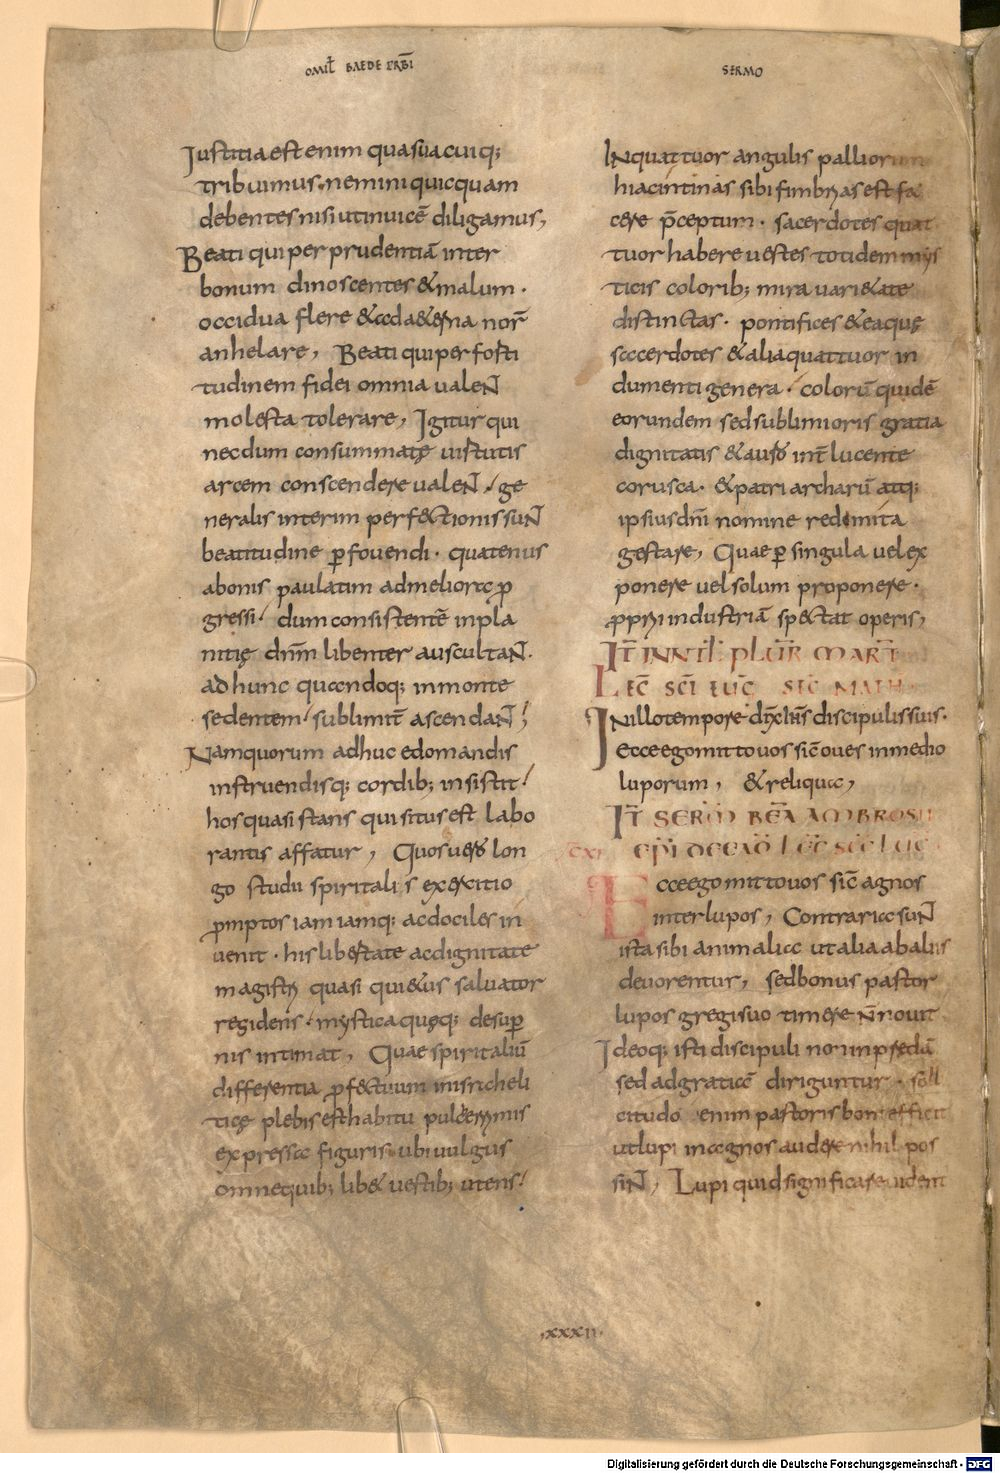 OMIꝉ BAEDE PRB̄I
SERMO
Justitia est enim qua sua cuiq;
tribuimus. nemini quicquam
debentes nisi ut invicē diligamus,
Beati qui per prudentiā inter
bonum dinoscentes & malum.
occidua flere & ad a&erna nor̄
anhelare, Beati qui per forti
tudinem fidei omnia valeN̄
molesta tolerare, Igitur qui
necdum consummatę virtutis
arcem conscendere valeN̄ / ge
neralis interim perfectionis suN̄
beatitudine ꝑfovendi. quatenus
a bonis paulatim ad meliora ꝓ
gressi / dum consistentē in pla
nitię dn̄m libenter auscultaN̄.
adhunc quandoq; in monte
sedentem / sublimit̄ ascendaN̄;
Namquorum adhuc edomandis
instruendisq; cordib; insistit /
hos quasi stans qui situs est labo
rantis affatur, Quos vero lon
go studii spiritalis exercitio
ꝓmptos iam iamq; ac dociles in
venit. his libertate ac dignitate
magistri quasi qui&us salvator
residens / mystica quęq; desuꝑ
nis intimat, Quae spiritaliū
differentia ꝓfectuum in isrаheli
ticę plebis est habitu pulcherrimis
expressa figuris. ubi vulgus
omne quib; lib& vestib; utens /
In quattuor angulis palliorum
hiacintinas sibi fimbrias est fa
cere p̄ceptum. sacerdotes quat
tuor habere vestes totidem mys
ticis colorib; mira vari&ate
distinctas. pontifices & eaque
sacerdotes & alia quattuor in
dumenti genera / colorū quidē
eorundem sed sublimioris gratia
dignitatis & auro int̄ lucente
corusca. & patriarcharū atq;
ipsius dn̄i nomine redimita
gestare, Quae ꝑ singula vel ex
ponere vel solum proponere.
ꝓprii industriā spectat operis,
IT̄ IN NT̄L PLUR̄ MART̄
LEC̄ SCĪ EUC̄ SEC̄ MATH
In illo tempore dix̄ ih̄s discipulis suis.
Ecce ego mitto vos sic̄ oves in medio
luporum, & reliqua,
IT̄ SERM̄ BEĀ AMBROSII
EPĪ DE EAD̄ LEC̄ SCĒ LUC
Ecce ego mitto vos sic̄ agnos
inter lupos, Contraria suN̄
ista sibi animalia ut alia ab aliis
devorentur, sed bonus pastor
lupos gregi suo timere n̄ novit
Ideoq; isti discipuli non in predā
sed ad gratiā diriguntur. solli
citudo enim pastoris boni efficit
ut lupi in agnos audere nihil pos
siN̄, Lupi quid significare vident
.XXXII.
Digitalisierung gefördert durch die Deutsche Forschungsgemeinschaft - DFG